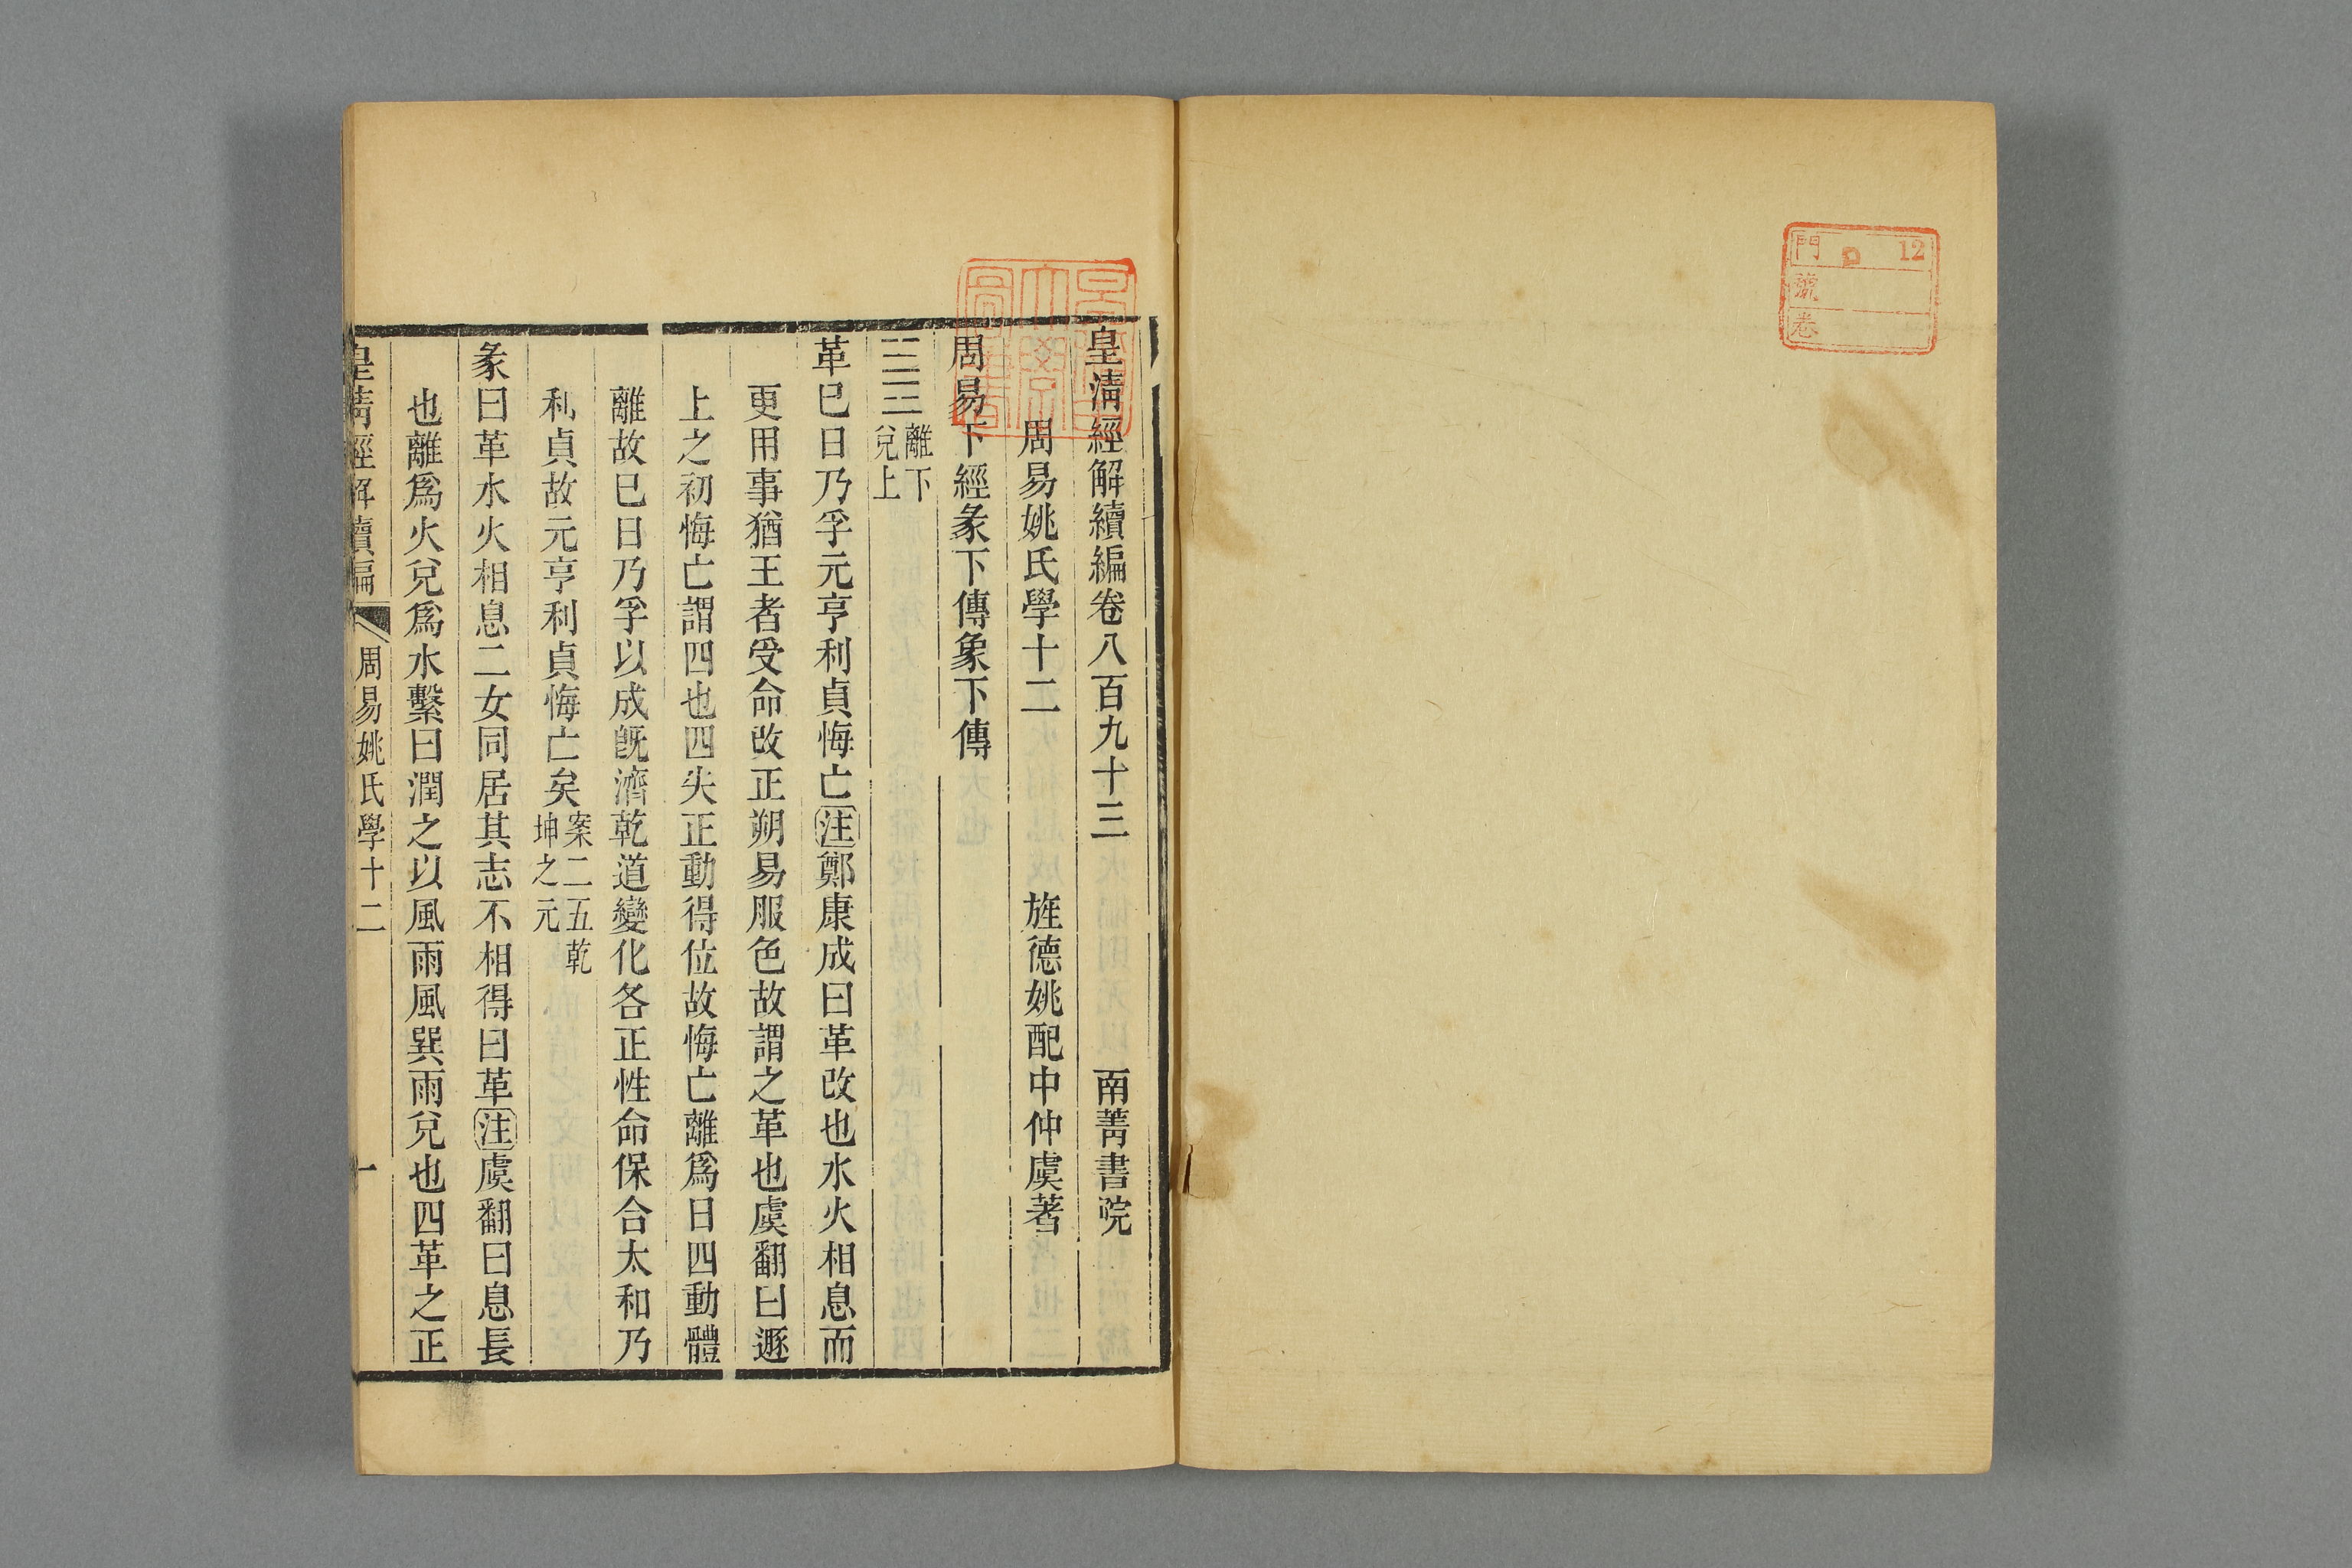 12
門
號
卷
皇清經解續編卷八百九十三 南菁書院
周易姚氏學十二 旌德姚配中仲虞著
周易下經彖下傳象下傳
離下
兌上
革巳日乃孚元亨利貞悔亡注鄭康成曰革改也水火相息而
更用事猶王者受命改正朔易服色故謂之革也虞翻曰遯
上之初悔亡謂四也四失正動得位故悔亡離爲日四動體
離故巳日乃孚以成旣濟乾道變化各正性命保合太和乃
利貞故元亨利貞悔亡矣案二五乾
坤之元
彖曰革水火相息二女同居其志不相得曰革注虞翻曰息長
也離爲火兌爲水繫曰潤之以風雨風巽雨兌也四革之正
皇清經解續編 周易姚氏學十二 一